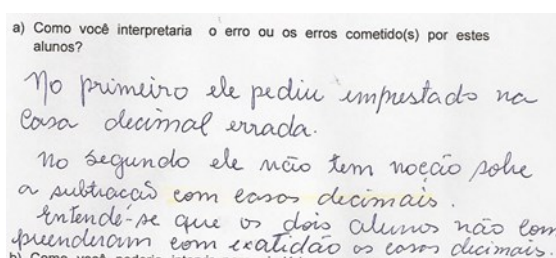 a) Como você interpretaria o erro ou os erros cometido(s) por estes
alunos?
No primeiro ele pediu emprestado na
Casa decimal errada.
No segundo ele não tem noção sobre
a subtração com casas decimais.
Entende-se que os dois alunos não com
preenderam com exatidão as casas decimais.
b) Como você poderia